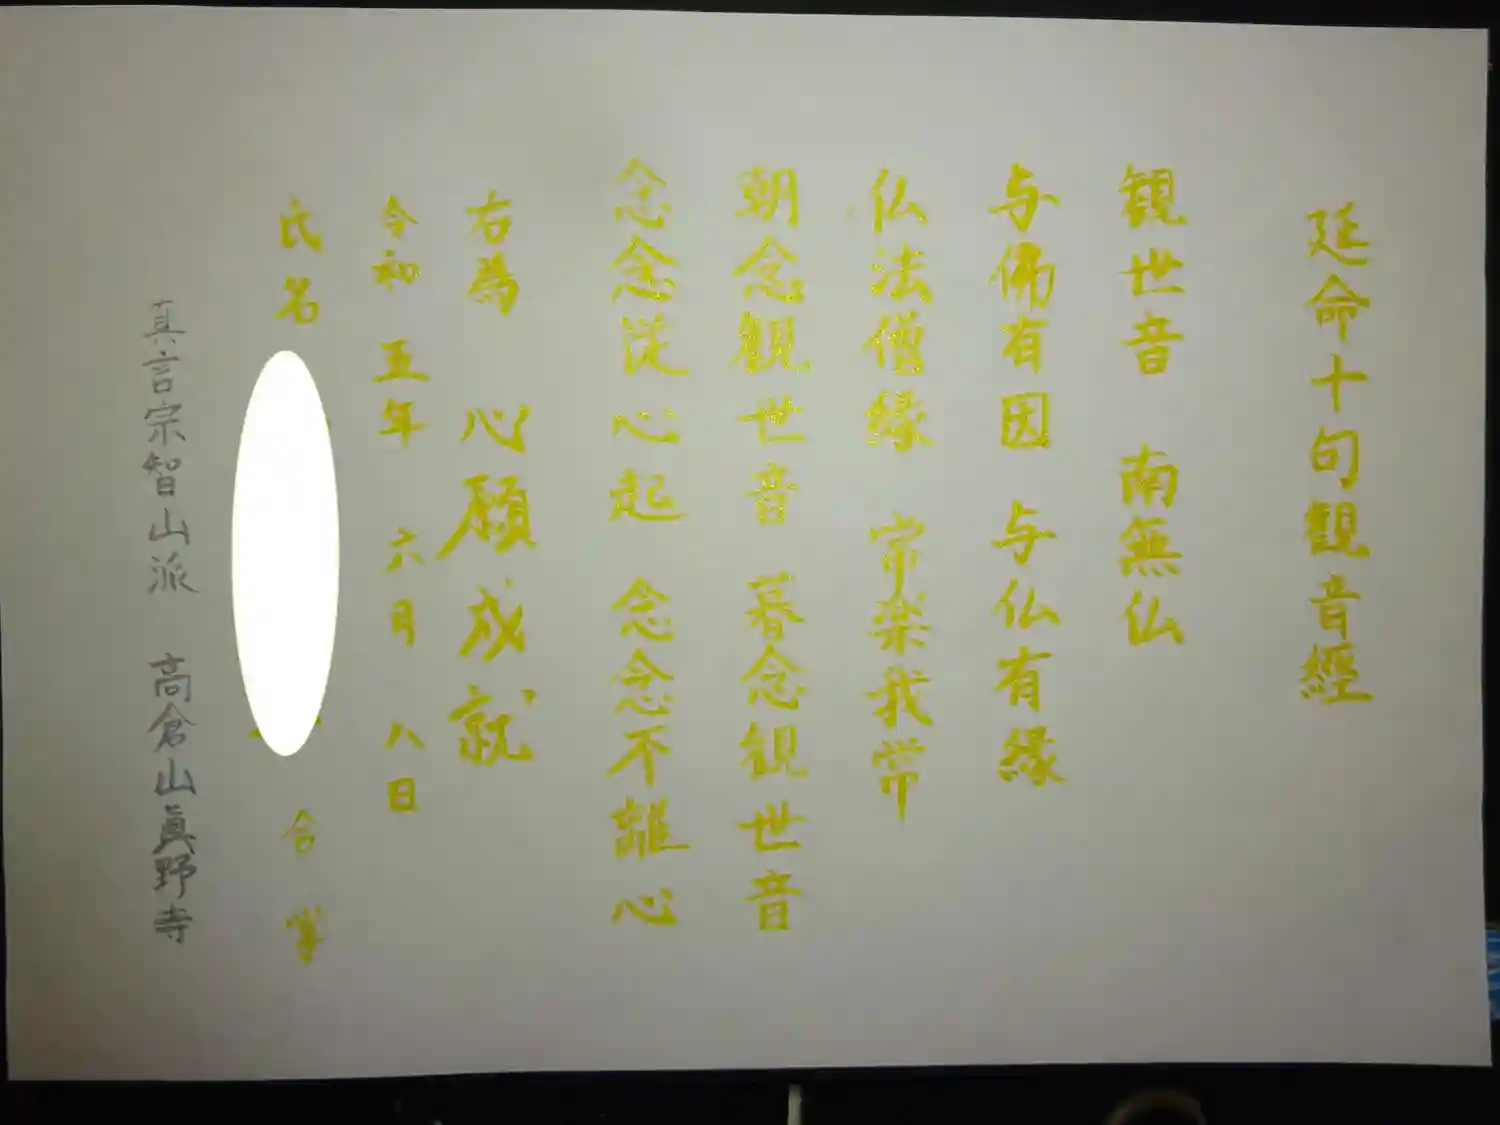 延命十句觀音經
観世音 南無仏
与佛有因 与仏有縁
仏法僧縁 常楽我常
朝念観世音 暮念観世音
念念従心起 念念不離心
右為 心願成就
令和 五年 六月 八日
氏名 合掌
真言宗智山派 高倉山眞野寺